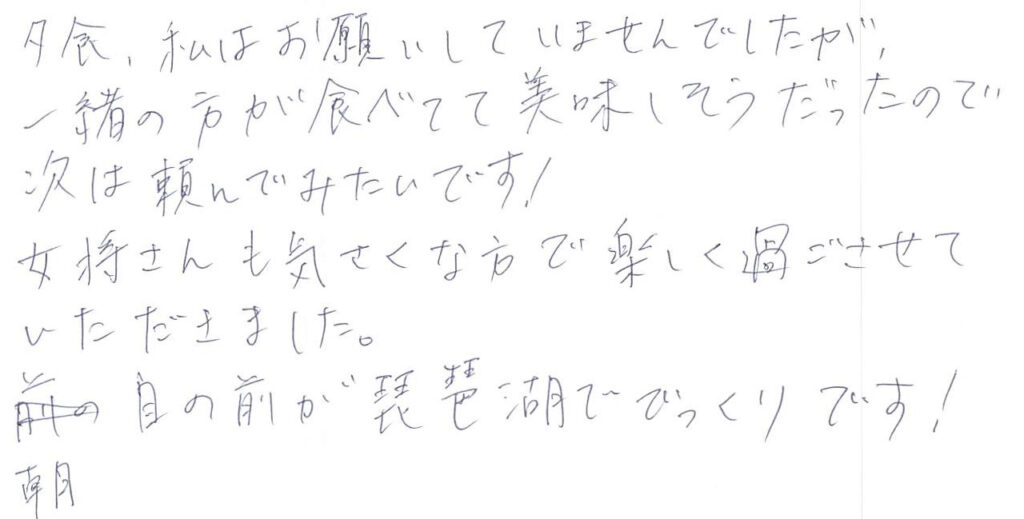 夕食、私はお願いしていませんでしたが、
一緒の方が食べてて美味しそうだったので
次は頼んでみたいです!
女将さんも気さくな方で楽しく過ごさせて
いただきました。
前の 目の前が琵琶湖でびっくりです!
朝